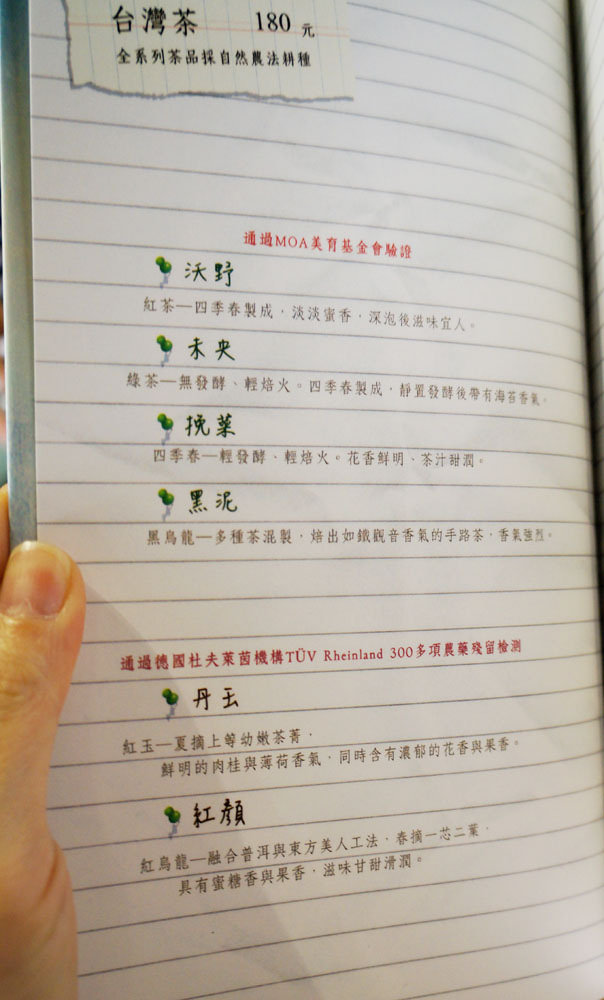 台灣茶 180元
全系列茶品採自然農法耕種
通過MOA美育基金會驗證
沃野
紅茶—四季春製成，淡淡蜜香，深泡後滋味宜人。
未央
綠茶—無發酵、輕焙火。四季春製成，靜置發酵後帶有海苔香氣。
挽菓
四季春—輕發酵、輕焙火。花香鮮明、茶汁甜潤。
黑泥
黑烏龍—多種茶混製，焙出如鐵觀音香氣的手路茶，香氣強烈。
通過德國杜夫萊茵機構TÜV Rheinland 300多項農藥殘留檢測
丹玉
紅玉—夏摘上等幼嫩茶菁，
鮮明的肉桂與薄荷香氣，同時含有濃郁的花香與果香。
紅顏
紅烏龍—融合普洱與東方美人工法，春摘一芯二葉，
具有蜜糖香與果香，滋味甘甜滑潤。